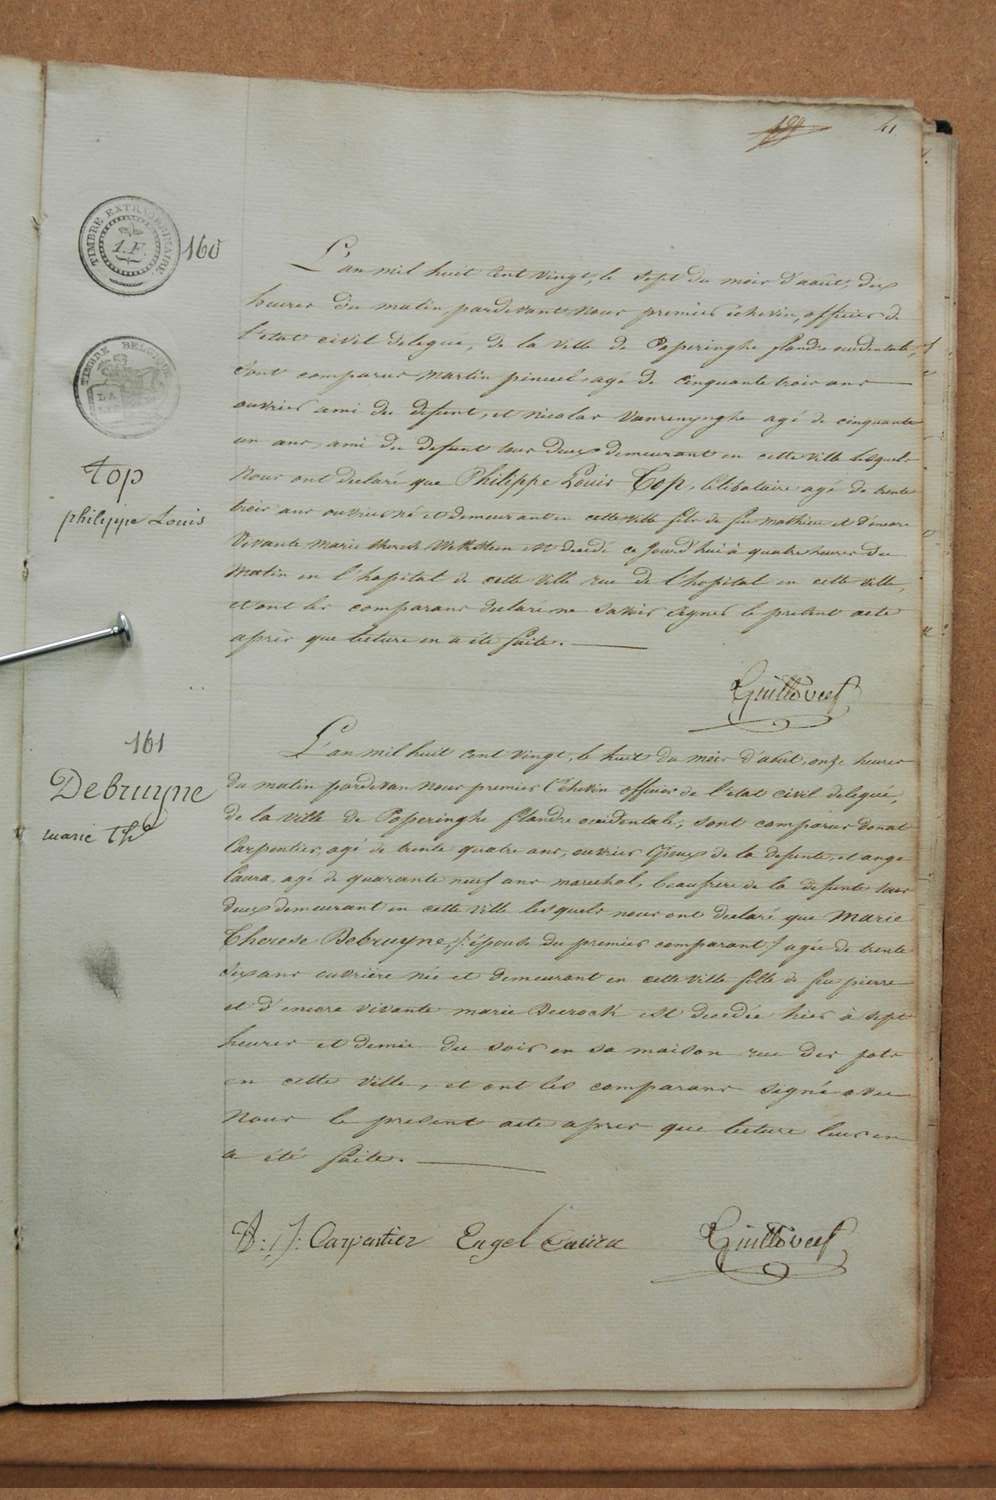 41
TIMBRE EXTRAORDINAIRE
1.F.
160
TIMBRE BELGIQUE
Top
philippe Louis
L'an mil huit cent vingt, le sept du mois d'août, dix
heures du matin pardevant Nous premier échevin, officier de
l'état civil delegué, de la ville de Poperinghe flandre occidentale,
sont comparus Martin pinuel, agé de cinquante trois ans
ouvrier ami du defunt, et Nicolas Vanrenynghe agé de cinquante
un ans, ami du defunt tous deux demeurant en cette ville lesquels
Nous ont declaré que Philippe Louis Top, celibataire agé de trente
trois ans ouvrier né et demeurant en cette ville fils de feu mathieu et d'encore
Vivante Marie therese est decedé ce jourd'hui à quatre heures du
Matin en l'hopital de cette ville rue de l'hopital en cette ville,
et ont les comparans declaré ne savoir signer le présent acte
après que lecture en a été faite.
161
Debruyne
marie The
L'an mil huit cent vingt, le huit du mois d'août, onze heures
du matin pardevan Nous premier Echevin officier de l'état civil delegué,
de la ville de Poperinghe flandre occidentale, sont comparus Donat
Carpentier, agé de trente quatre ans, ouvrier Epoux de la defunte, et ange
Caura, agé de quarante neuf ans marechal, beaufrere de la defunte tous
deux demeurant en cette ville lesquels nous ont declaré que Marie
Therese Debruyne, /: épouse du premier comparant / agée de trente
six ans ouvrière née et demeurant en cette ville fille de feu pierre
et d'encore vivante marie est decedée hier à sept
heures et demie du soir en sa maison rue des pots
en cette ville, et ont les comparans signé avec
Nous le présent acte apres que lecture leur en
a été faite.
Carpentier Engel Caura